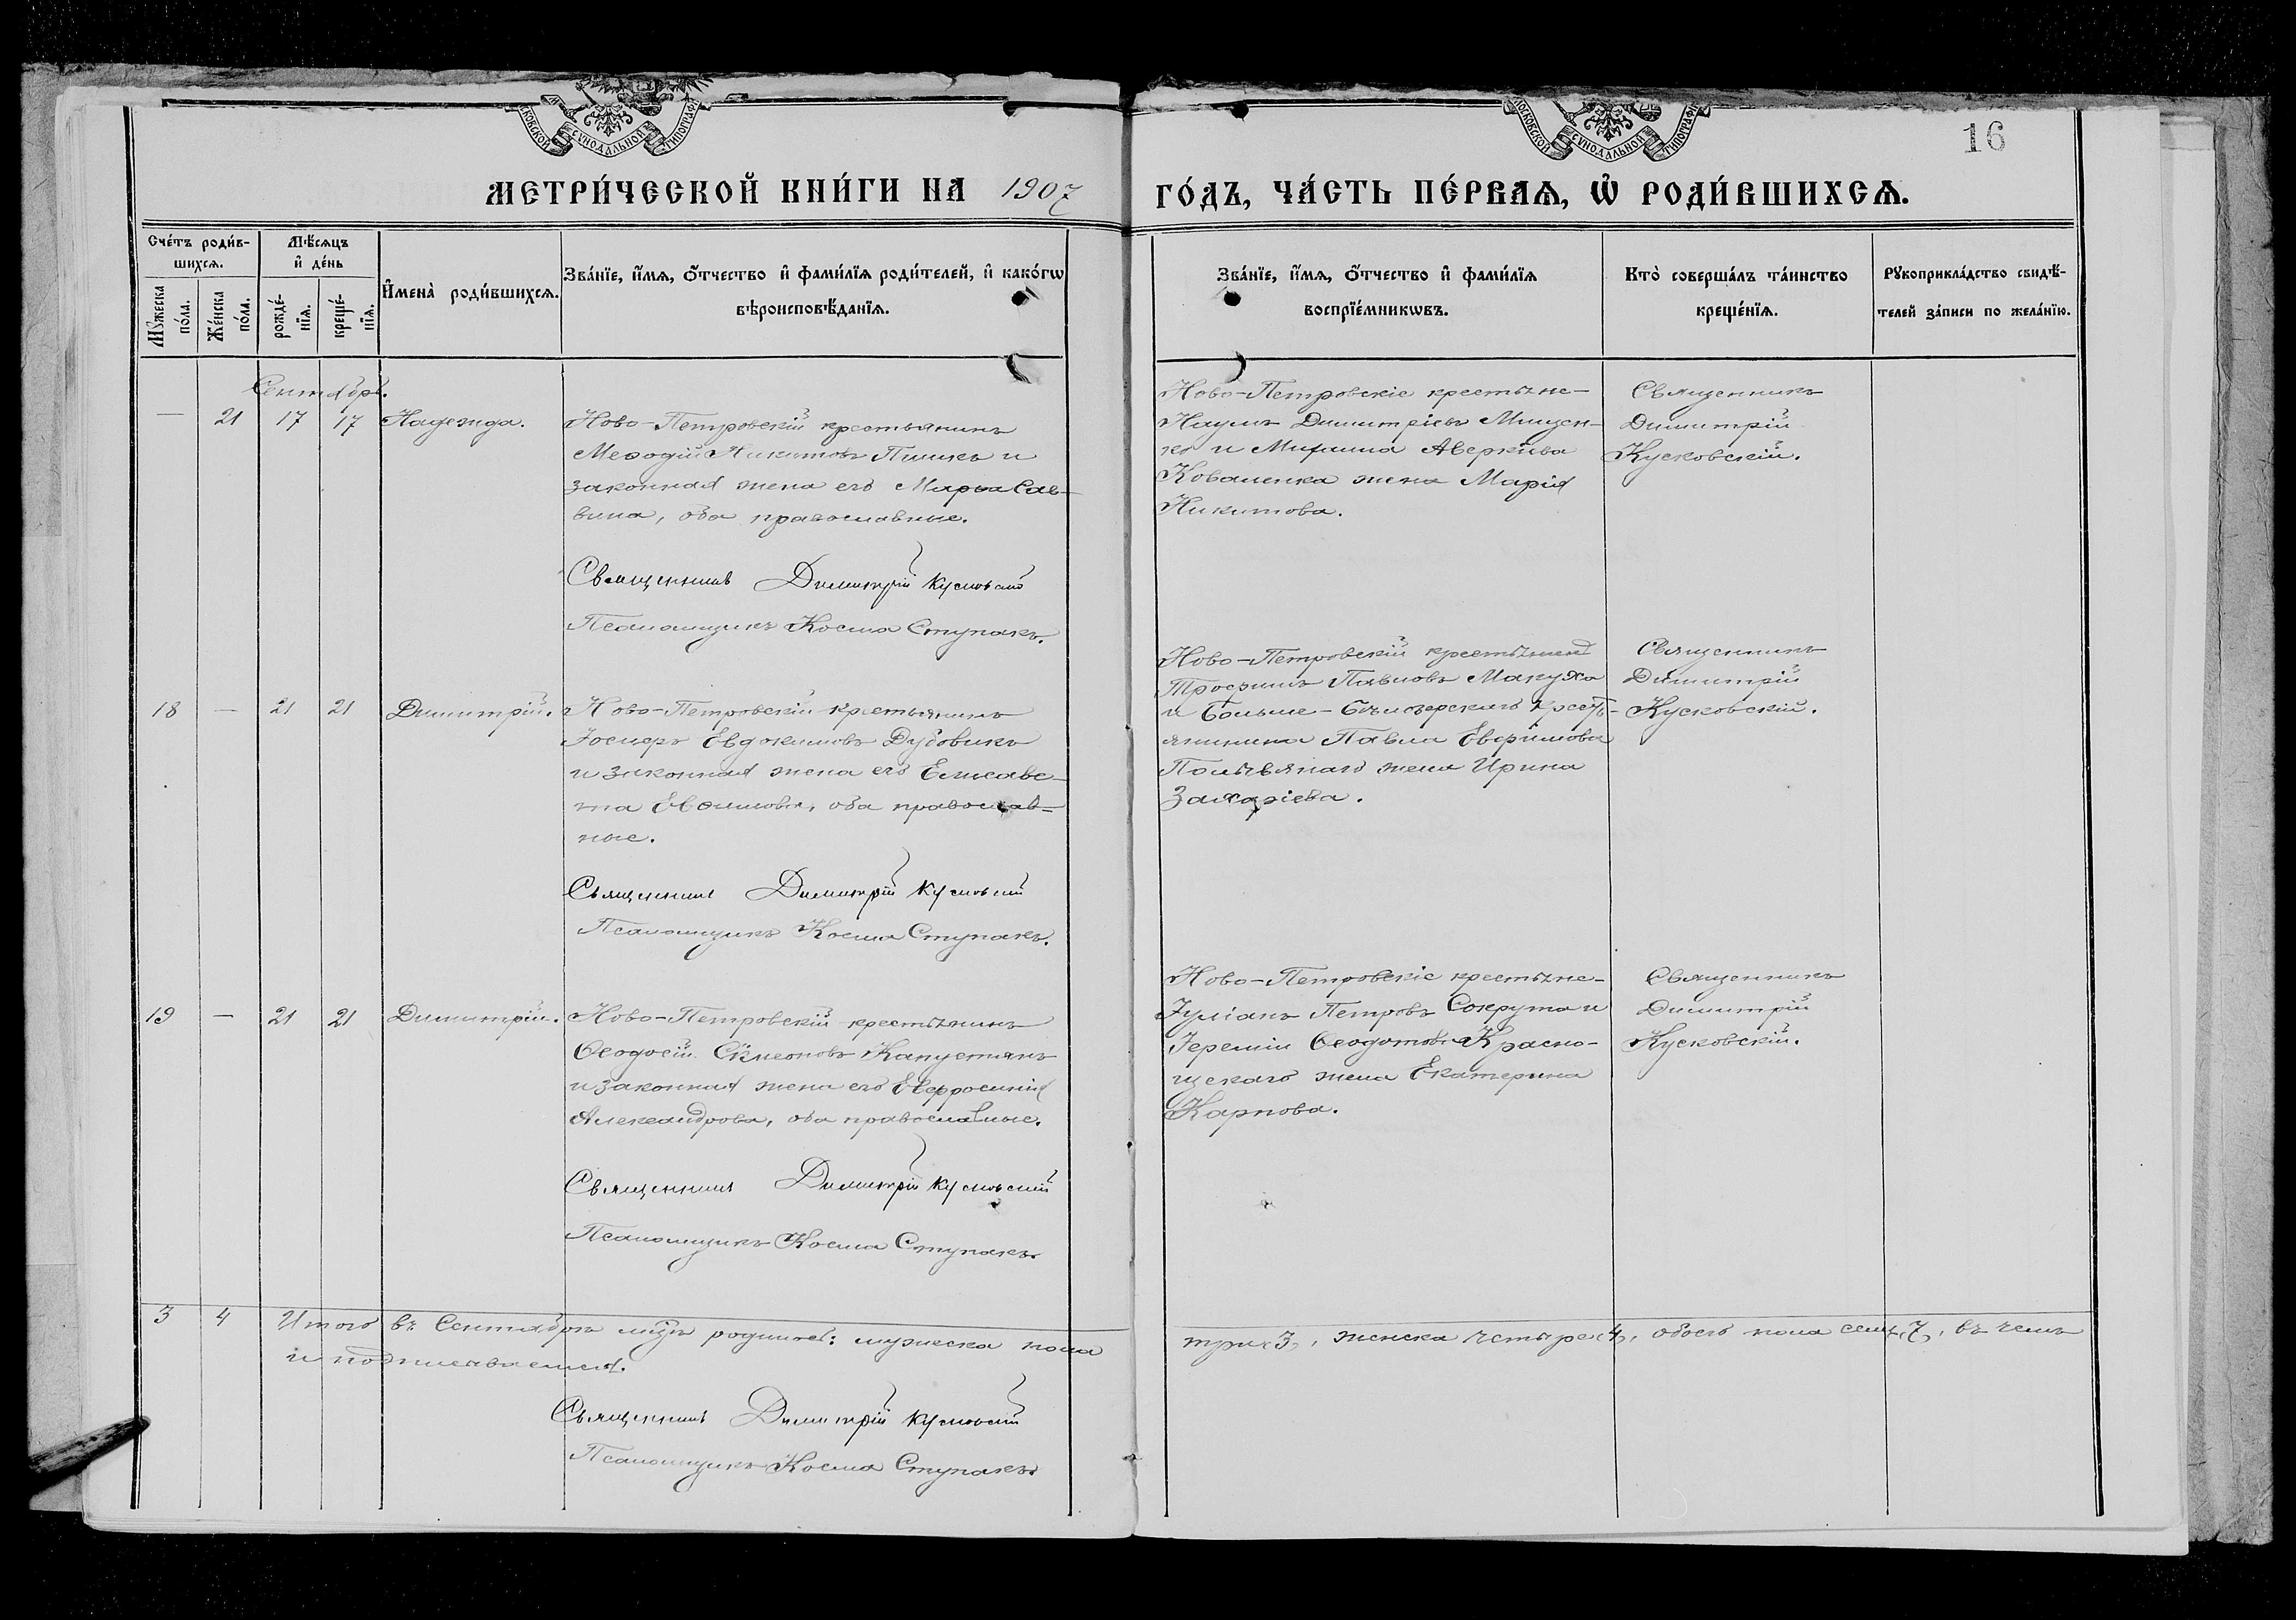 МОСКОВСКОЙ СѴНОДАЛЬНОЙ ТИПОГРАФ
МОСКОВСКОЙ СѴНОДАЛЬНОЙ ТИПОГРАФ
16
МЕТРИ́ЧЕСКОЙ КНИ́ГИ НА 1907
ГО́ДЪ, ЧА́СТЬ ПЕ́РВАѦ, Ѡ҆ РОДИ́ВШИХСѦ.
Сче́тъ роди́в-
шихсѧ.
Мѹжеска по́ла.
Же́нска по́ла.
Мѣ́сѧцъ
и҆ де́нь
рожде́-
нїѧ.
креще́-
нїѧ.
И҆мена̀ роди́вшихсѧ.
Зва́нїе, и҆́мѧ, ѻ҆́тчество и҆ фами́лїѧ роди́телей, и҆ како́гѡ
вѣроисповѣ́данїѧ.
Зва́нїе, и҆́мѧ, ѻ҆́тчество и҆ фами́лїѧ
воспрїе́мникѡвъ.
Кто̀ соверша́лъ та́инство
креще́нїѧ.
Рѹкоприкла́дство свидѣ́-
телей за́писи по жела́нїю.
Сентябрь.
— 21 17 17 Надежда.
Ново-Петровскій крестьянинъ
Меѳодій Никитовъ Пшикъ и
законная жена его Марѳа Сав-
вина, оба православные.
Священникъ Димитрій Кусковскій
Псаломщикъ Косма Ступакъ.
Ново-Петровскіе крестьяне-
Наумъ Димитріевъ Мищен-
ко и Михаила Аверкіева
Коваленка жена Марія
Никитова.
Священникъ
Димитрій
Кусковскій.
18 — 21 21 Димитрій.
Ново-Петровскій крестьянинъ
Іосифъ Евдокимовъ Дубовикъ
и законная жена его Елисаве-
та Евѳимова, оба православ-
ные.
Священникъ Димитрій Кусковскій
Псаломщикъ Косма Ступакъ.
Ново-Петровскій крестьянинъ
Трофимъ Павловъ Макуха
и Больше-Бѣлозерскаго крестъ-
янина Павла Евфимова
жена Ирина
Захаріева.
Священникъ
Димитрій
Кусковскій.
19 — 21 21 Димитрій.
Ново-Петровскій крестьянинъ
Ѳеодосій Симеоновъ Капустянъ
и законная жена его Евфросинія
Александрова, оба православные.
Священникъ Димитрій Кусковскій
Псаломщикъ Косма Ступакъ.
Ново-Петровскіе крестьяне-
Іуліанъ Петровъ Сокрута и
Іереміи Ѳеодотова Красно-
щекаго жена Екатерина
Карпова.
Священникъ
Димитрій
Кусковскій.
3 4 Итого въ Сентябрѣ м‑цѣ родилось: мужеска пола
три (3), женска четыре (4), обоего пола семь (7), въ чемъ
и подписываемся.
Священникъ Димитрій Кусковскій
Псаломщикъ Косма Ступакъ.